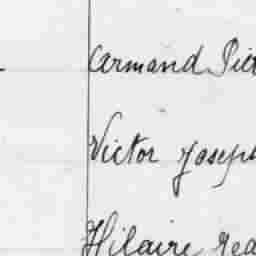 Armand Pie
Victor Joseph
Hilaire Jea